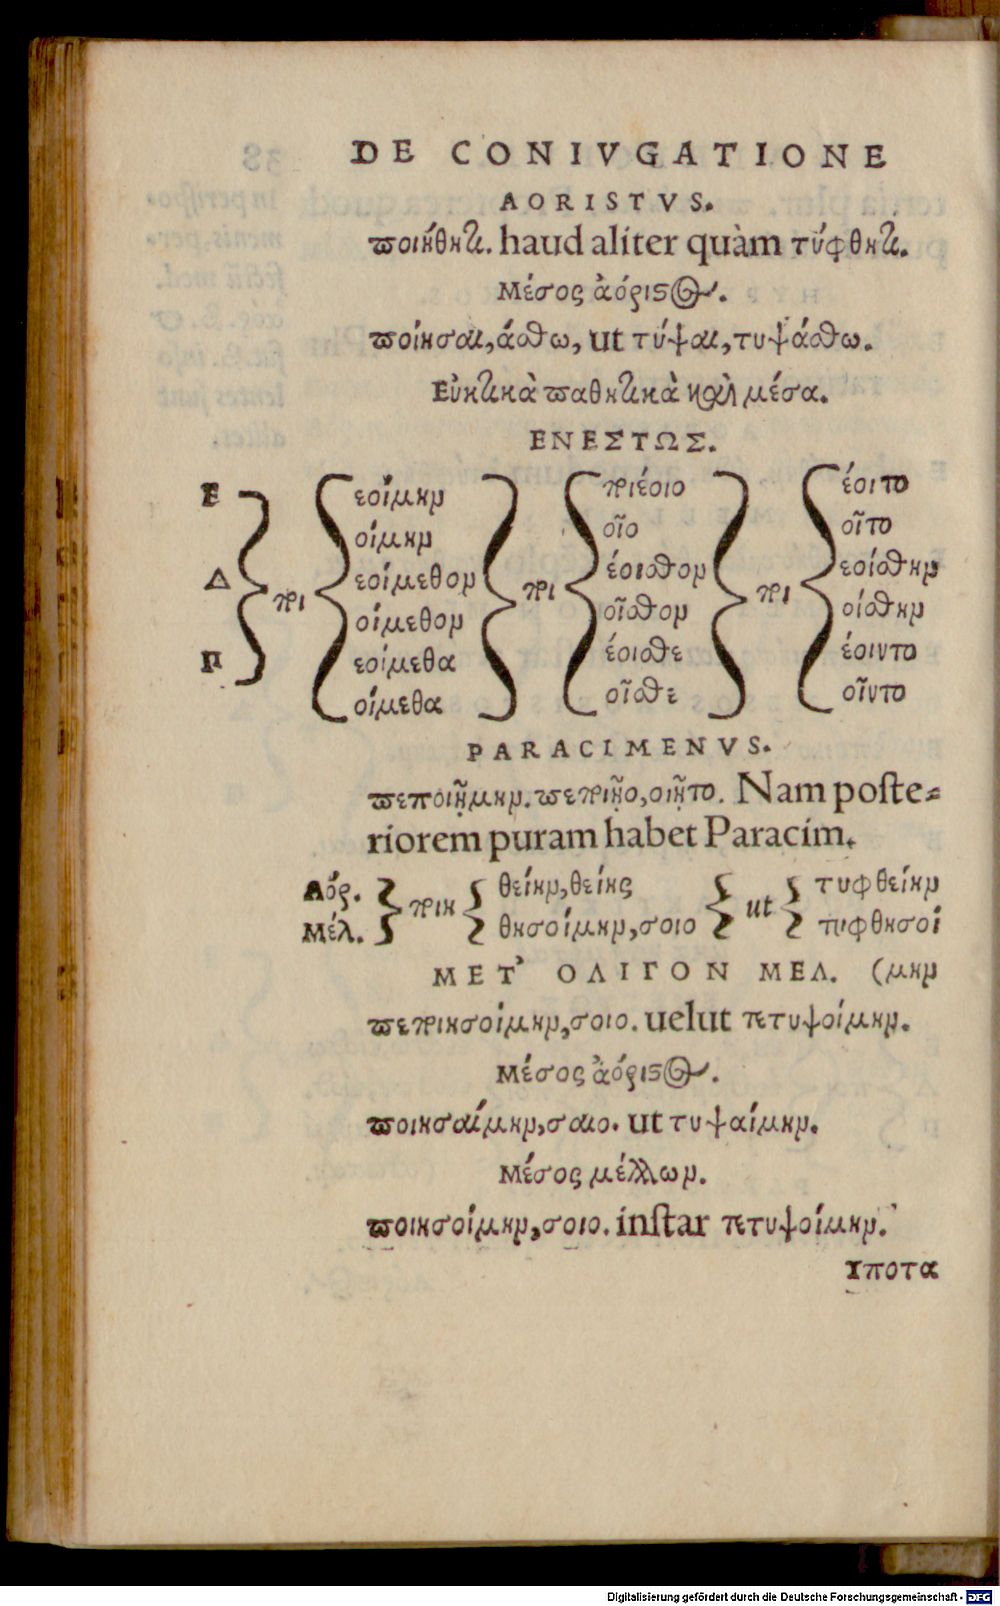 DE CONIVGATIONE
AORISTVS.
ποιήθητι. haud aliter quàm τύφθητι.
Μέσος ἀόριστος.
ποίησαι, άσθω, ut τύψαι, τυψάσθω.
Εὐκτικὰ παθητικὰ καὶ μέσα.
ΕΝΕΣΤΩΣ.
Ε
Δ
Π
ποι
εοίμην
οίμην
εοίμεθον
οίμεθον
εοίμεθα
οίμεθα
ποι
ποιέοιο
οῖο
έοισθον
οῖσθον
έοισθε
οῖσθε
ποι
έοιτο
οῖτο
εοίσθην
οίσθην
έοιντο
οῖντο
PARACIMENVS.
πεποιῄμην. πεποιῇο, οιῇτο. Nam poste=
riorem puram habet Paracim.
Αόρ.
Μέλ.
ποιη
θείην, θείης
θησοίμην, σοιο
ut
τυφθείην
τυφθησοί
ΜΕΤ' ΟΛΙΓΟΝ ΜΕΛ. (μην
πεποιησοίμην, σοιο. uelut πετυψοίμην.
Μέσος ἀόριστος.
ποιησαίμην, σαιο. ut τυψαίμην.
Μέσος μέλλων.
ποιησοίμην, σοιο. instar πετυψοίμην.
Ιποτα
Digitalisierung gefördert durch die Deutsche Forschungsgemeinschaft - DFG